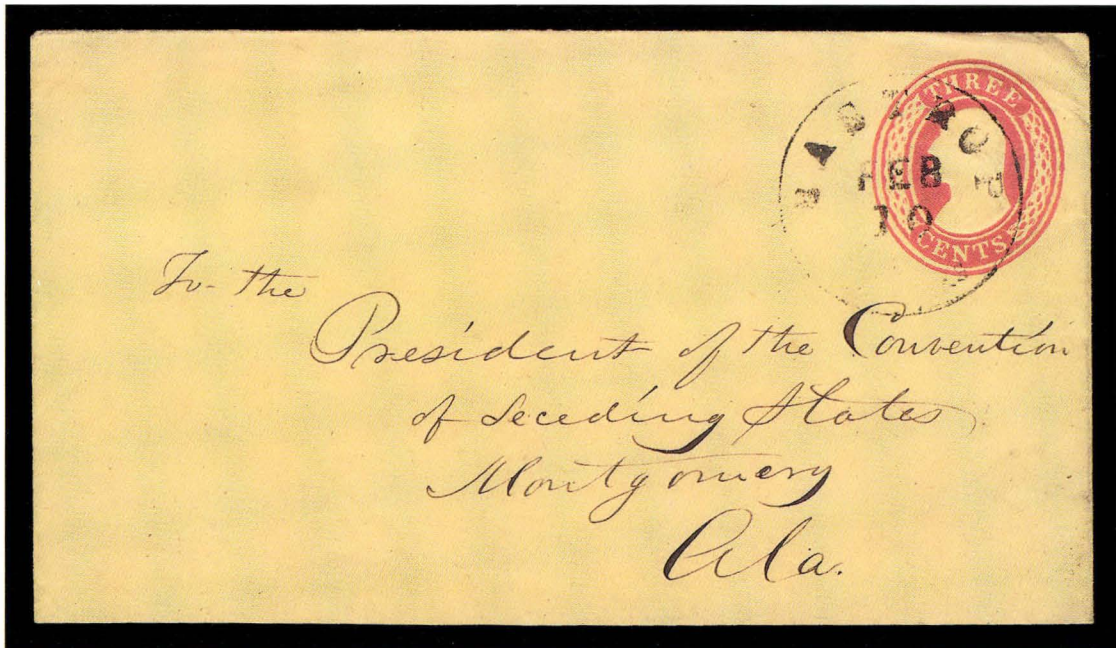 THREE
CENTS
BASTROP
FEB
10
To the
President of the Convention
of Seceding States
Montgomery
Ala.